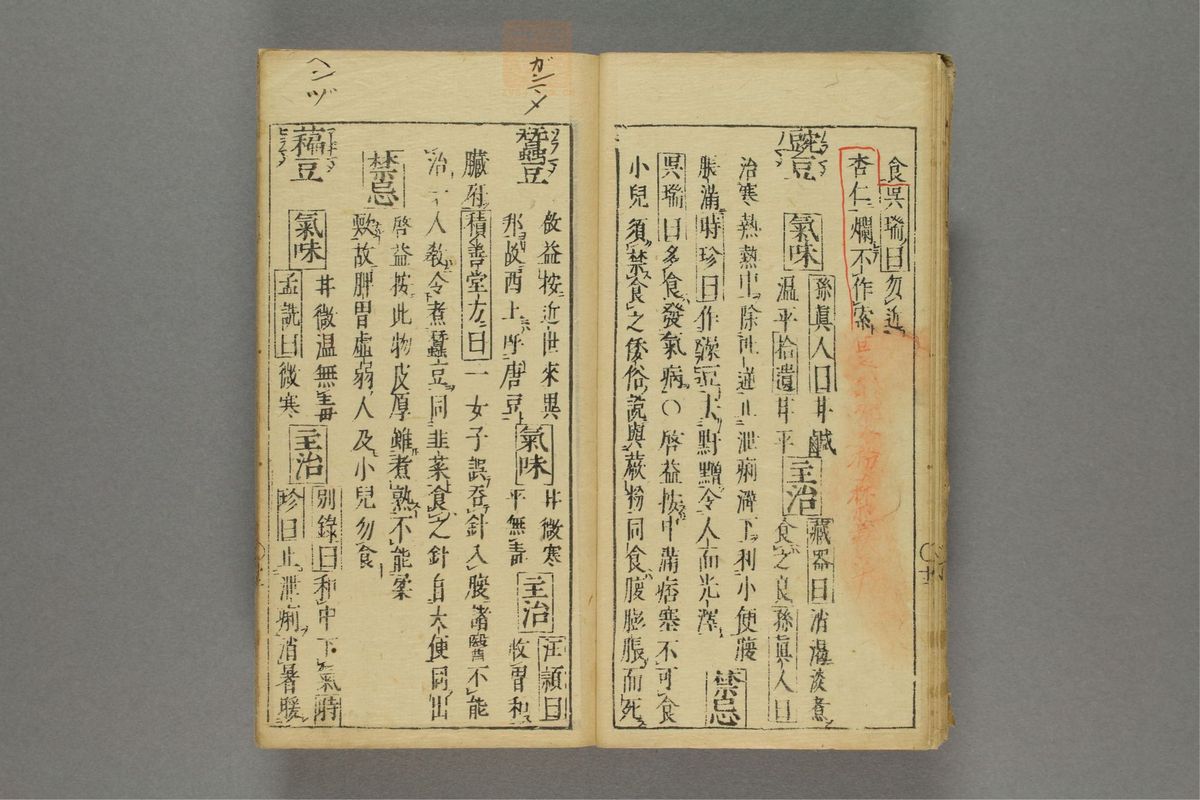 食呉瑞曰勿近
杏仁爛不作索
豌豆
氣味
孫眞人曰甘鹹
温平拾遺甘平
主治
藏器曰消渇淡煮
食之良孫眞人曰
治寒熱熱中除吐逆止泄痢澼下利小便腹
脹滿時珍曰作澡豆去䵟䵳令人面光澤
禁忌
呉瑞曰多食發氣病○啓益按中滿痞塞不可食
小兒須禁食之倭俗説與蕨粉同食腹膨脹而死
ガンマメ
蠶豆
啟益按近世來異
邦故西土呼唐豆
氣味
甘微寒
平無毒
主治
汪頴曰
快胃和
臟府積善堂方曰一女子誤呑針入腹諸醫不能
治一人敎令煮蠶豆同韭菜食之針自大便同出
禁忌
啓益按此物皮厚雖煮熟不能柔
軟故脾胃虚弱人及小兒勿食
ヘンヅ
藊豆
氣味
甘微温無毒
孟詵曰微寒
主治
別錄曰和中下氣時
珍曰止泄痢消暑暖